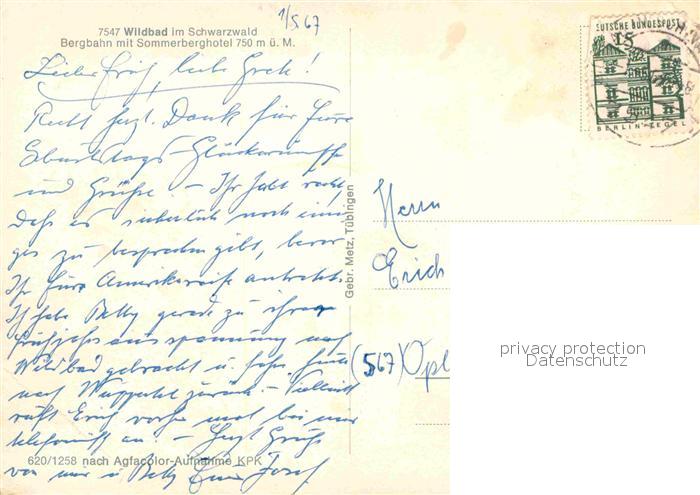 1/5.67
7547 Wildbad im Schwarzwald
Bergbahn mit Sommerberghotel 750 m ü. M.
Lieber Erich, liebe Gret!
Recht herzl. Dank für Eure
Geburtstags-Glückwünsche
und Grüße – Ihr habt recht,
daß es sicherlich noch eini-
ges zu besprechen gibt, bevor
Ihr Eure Amerikareise antretet.
Ich habe Betty gerade zu ihrer
Frühjahrsausspannung nach
Wildbad gebracht u. fahre heute
nach Wuppertal zurück. – Vielleicht
ruft Erich vorher mal bei mir
telefonisch an. – Herzl. Grüße
von mir u. Betty Euer Josef
620/1258 nach Agfacolor-Aufnahme KPK
Gebr. Metz, Tübingen
DEUTSCHE BUNDESPOST
15
BERLIN-TEGEL
Herrn
Erich
(567) Opl
privacy protection
Datenschutz